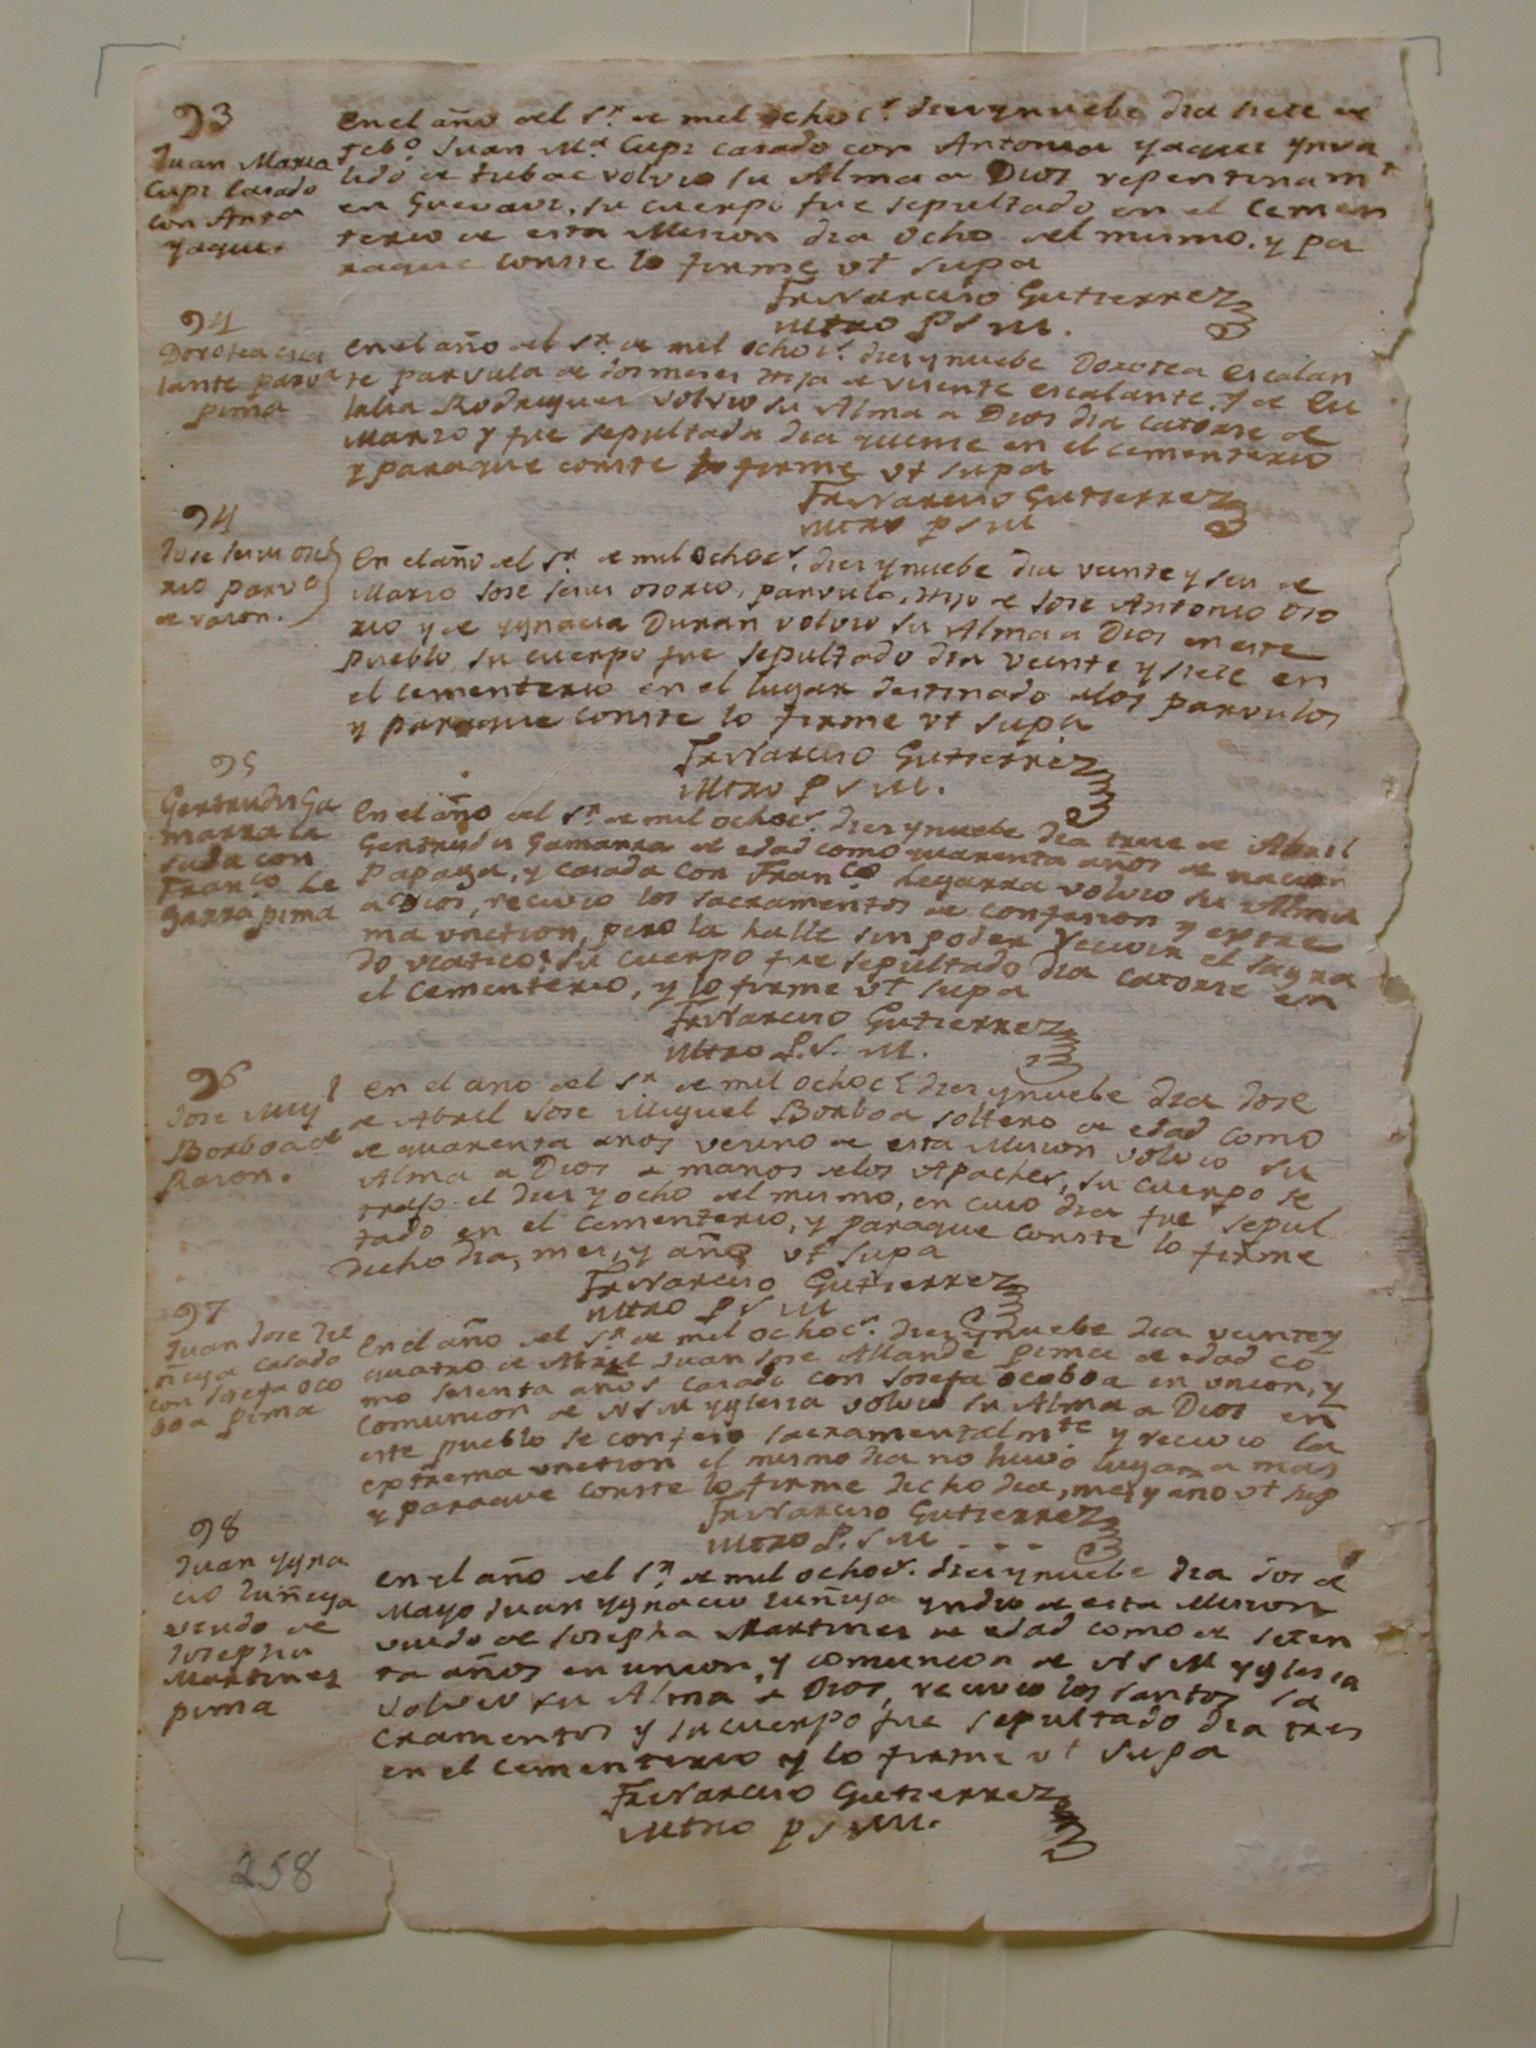 93
Juan Maria
Cupi Casado
con Anta
yaqui.
En el año del Sr. de mil ochocs. dies y nuebe dia siete de
Febo. Juan Ma. Cupi casado con Antonia yaqui ynva
lido de tubac volvio su Alma a Dios repentinamte
en Guevavi, su cuerpo fue sepultado en el Cemen
terio de esta Mision dia ocho del mismo. y pa
raque conste lo firme vt supa
Fr Narciso Gutierrez
Mtro P S M.
94
Dorotea esca
lante parva
pima
En el año del Sr. de mil ochocs. dies y nuebe Dorotea escalan
te parvula de dos meses Hija de Visente escalante, y de Eu
lalia Rodrigues volvio su Alma a Dios dia catorse de
Marzo y fue sepultada dia quinse en el cementerio
y paraque conste lo firme vt supa
Fr Narciso Gutierrez
Mtro P S M
94
Jose Jesus oso
rio parvo
de rason.
En el año del Sr. de mil ochocs. dies y nuebe dia veinte y seis de
Marso Jose Jesus osorio, parvulo, Hijo de Jose Antonio oso
rio y de ygnacia Duran volvio su Alma a Dios en este
Pueblo, su cuerpo fue sepultado dia veinte y siete en
el cementerio en el lugar destinado a los parvulos
y paraque conste lo firme vt supa
Fr Narciso Gutierrez
Mtro P S M.
95
Gertrudis Ga
marra ca
sada con
Franco Le
garra pima
En el año del Sr. de mil ochocs. dies y nuebe dia trece de Abril
Gertrudis Gamarra de edad como quarenta años de nacion
Papaga, y casada con Franco Legarra volvio su Alma
a Dios, recivio los sacramentos de confesion y extre
ma vnction, pero la halle sin poder recivir el sagra
do viatico: su cuerpo fue sepultado dia catorse en
el cementerio, y lo firme vt supa
Fr Narciso Gutierrez
Mtro P. S. M.
96
Jose Migl
Borboa de
Rason.
En el ano del Sr de mil ochocs dies y nuebe dia dose
de Abril Jose Miguel Borboa soltero de edad como
de quarenta anos vesino de esta Mision volvio su
Alma a Dios a manos de los Apaches, su cuerpo se
trajo el dies y ocho del mismo, en cuio dia fue sepul
tado en el cementerio, y paraque conste lo firme
dicho dia, mes, y año, vt supa
Fr Narciso Gutierrez
Mtro P S M
97
Juan Jose
casado
con Josefa oco
boa pima
En el año del Sr. de mil ochocs. dies y nuebe dia veinte y
quatro de Abril Juan Jose Allande pima de edad co
mo sesenta años casado con Josefa ocoboa en vnion, y
Comunion de N S M yglesia volvio su Alma a Dios en
este pueblo se confeso sacramentalmte y recivio la
extrema vnction el mismo dia no huvo lugar a mas
y paraque conste lo firme dicho dia, mes, y ano vt sup
Fr Narciso Gutierrez
Mtro P. S M - - -
98
Juan ygna
cio Zuñiga
viudo de
Josepha
Martines
pima
En el año del Sr. de mil ochocs. dies y nuebe dia dos de
Mayo Juan ygnacio Zuñiga yndio de esta Mision
viudo de Josepha Martines de edad como de seten
ta años en union, y comunion de N S M yglesia
volvio su Alma a Dios, recivio los santos sa
cramentos y su cuerpo fue sepultado dia tres
en el cementerio y lo firme vt supa
Fr Narciso Gutierrez
Mtro P S M.
258